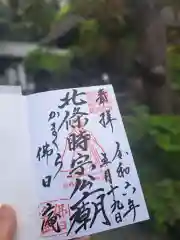 奉拝
令和六年
五月十九日
北條時宗公廟
かまくら
佛日
庵